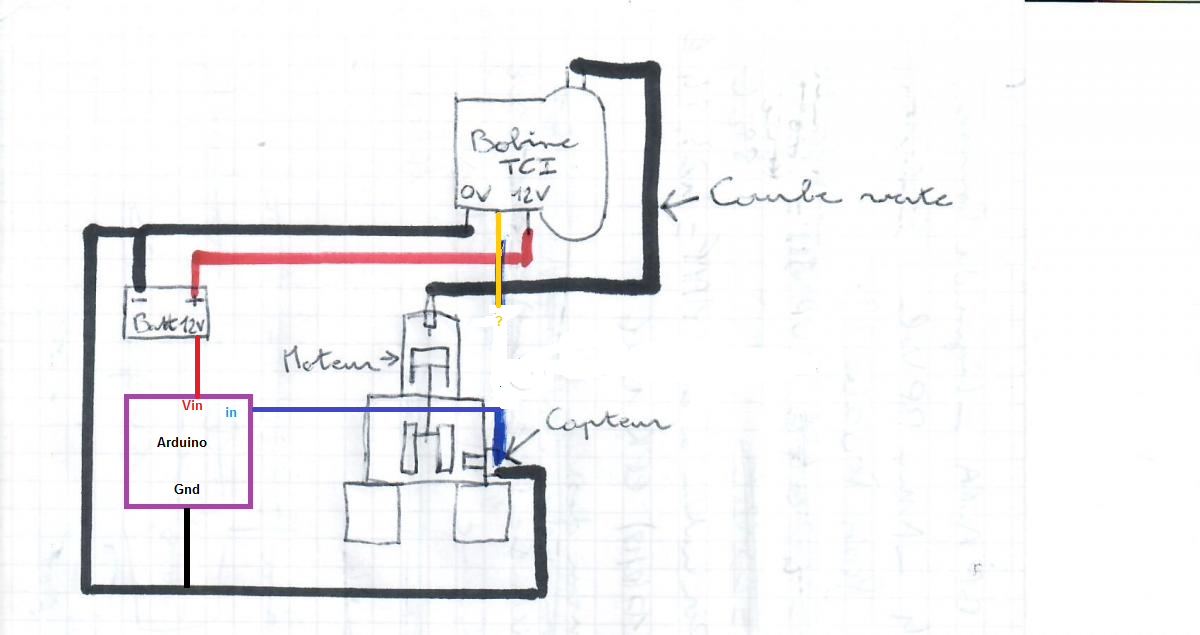 Bobine
TCI
0V 12V
Courbe verte
- +
Batt 12V
?
Moteur
Vin
in
Capteur
Arduino
Gnd